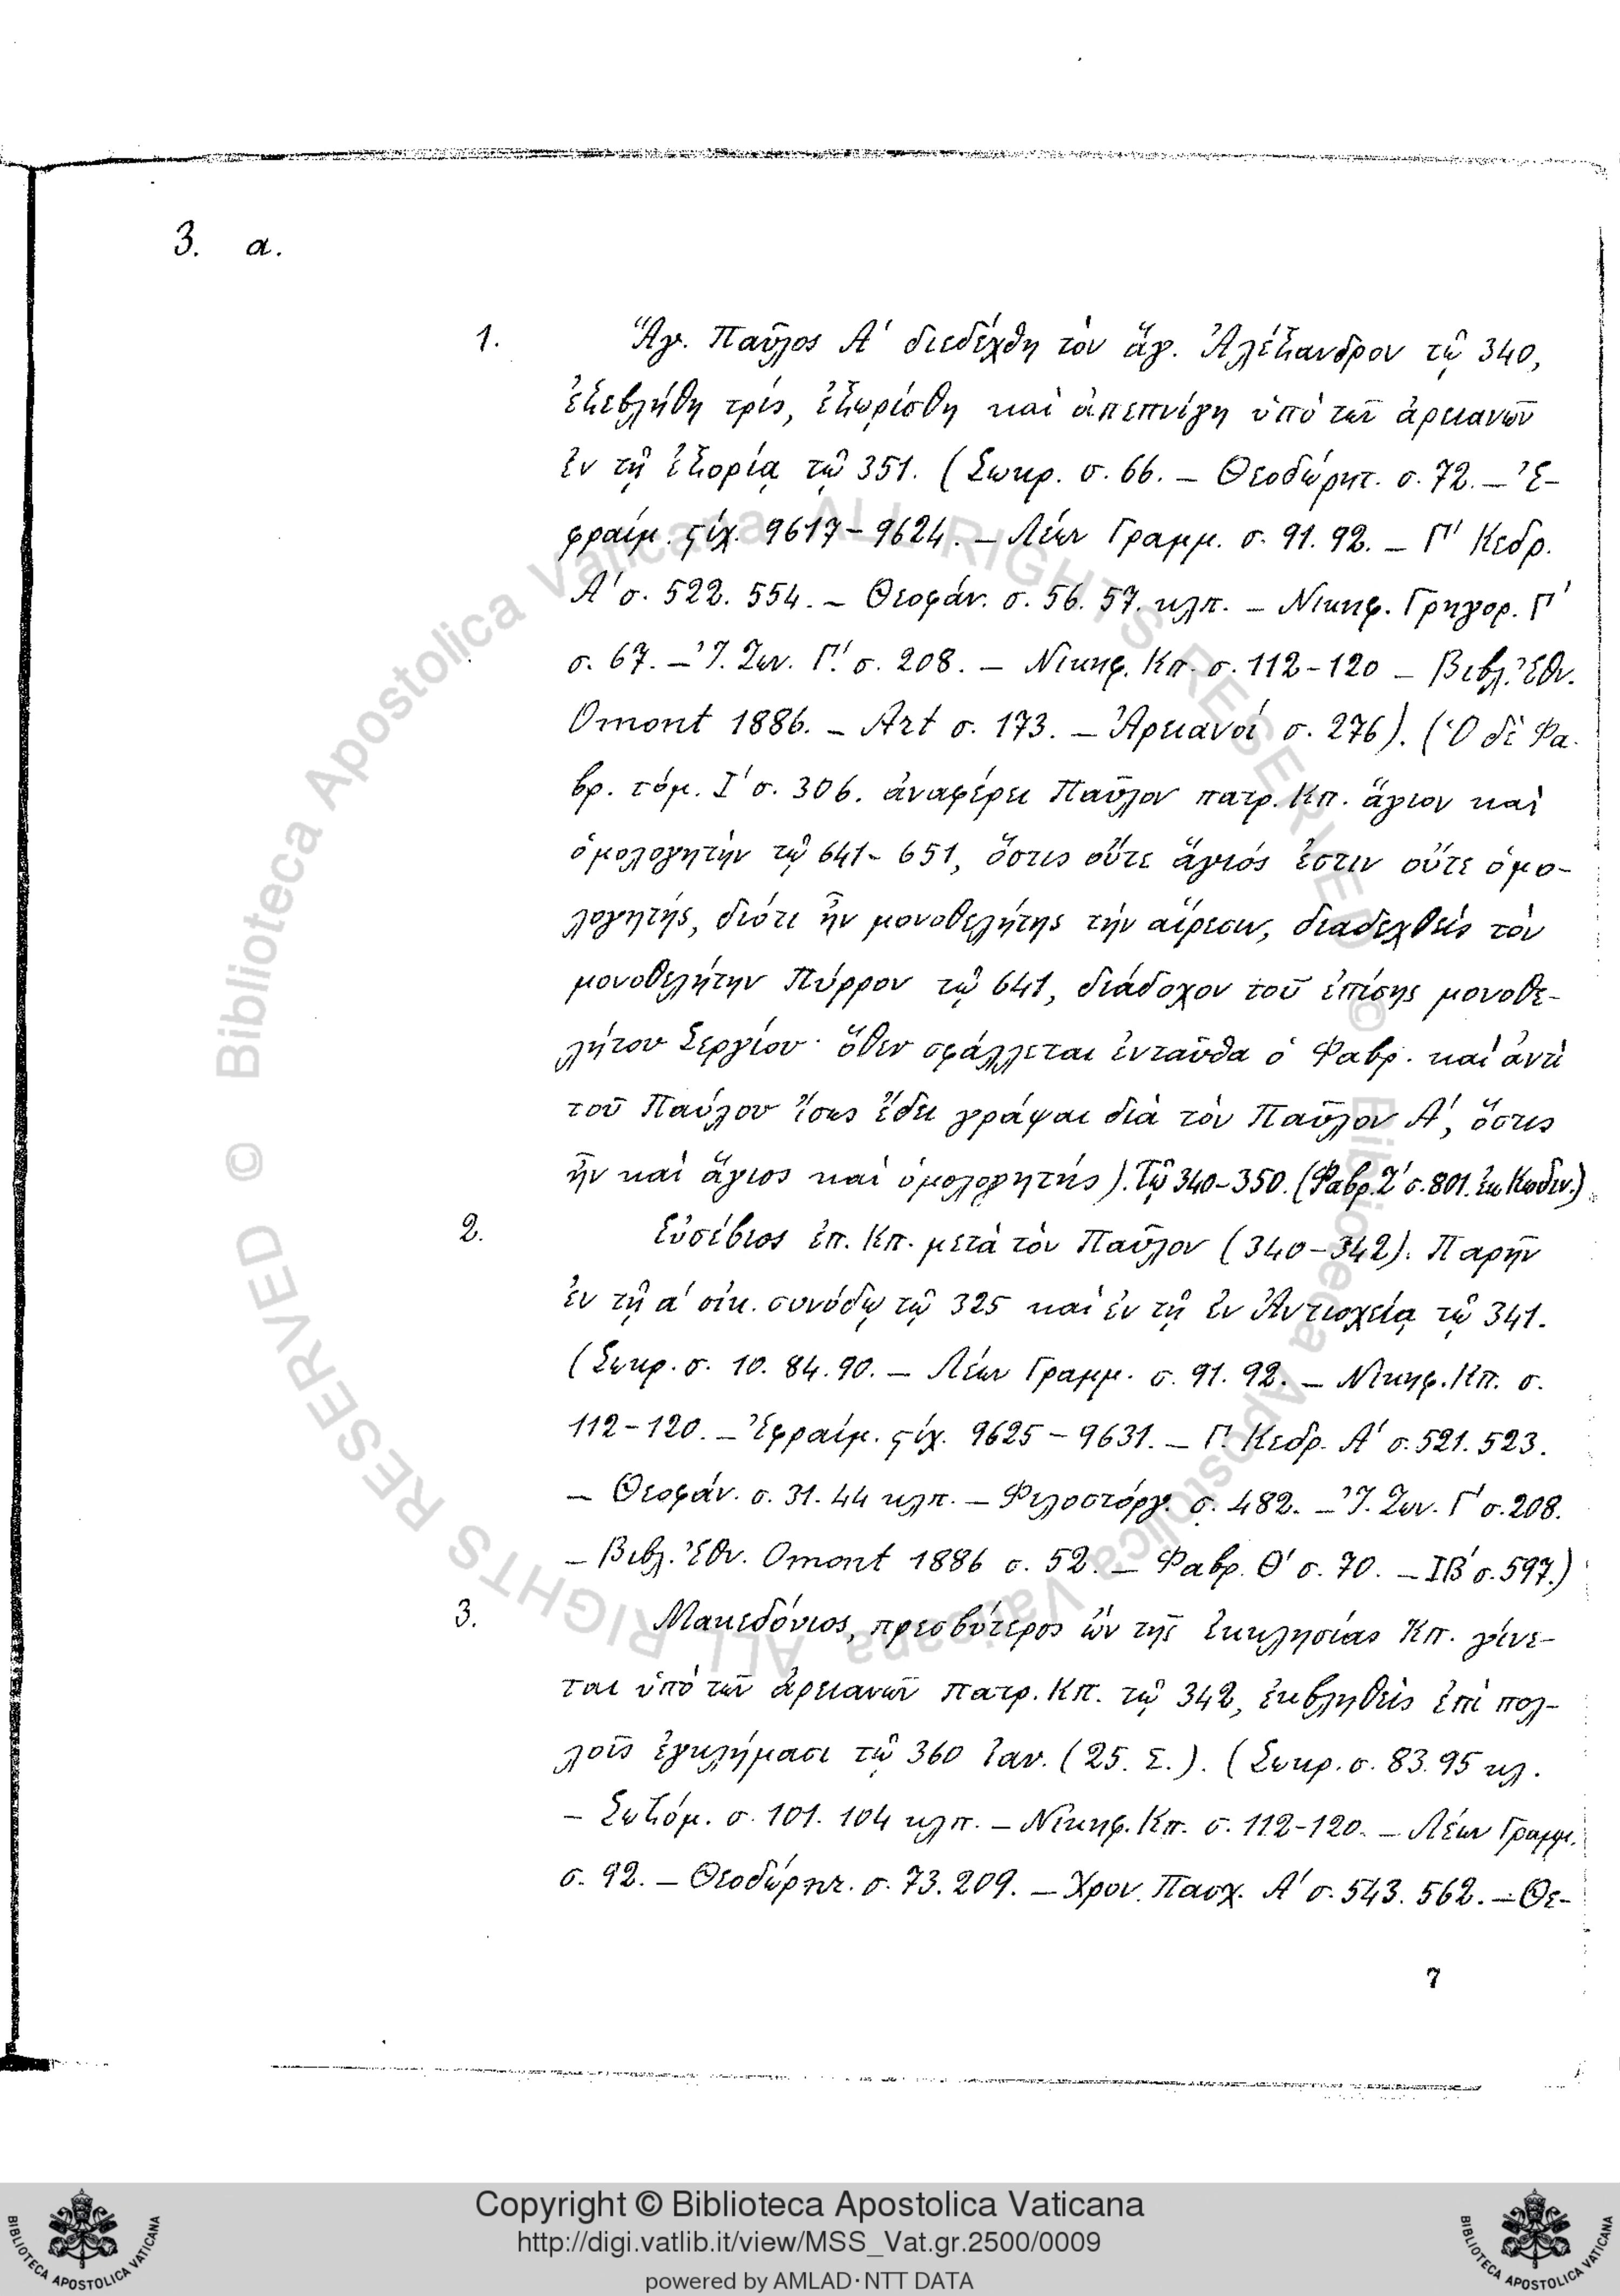 3. α.
1. Ἅγ. Παῦλος Α΄ διεδέχθη τὸν ἅγ. Ἀλέξανδρον τῷ 340,
ἐξεβλήθη τρίς, ἐξωρίσθη καὶ ἀπεπνίγη ὑπὸ τῶν ἀρειανῶν
ἐν τῇ ἐξορίᾳ τῷ 351. (Σωκρ. σ. 66. – Θεοδώρητ. σ. 72. – Ἐ-
φραίμ. ϛίχ. 9617–9624. – Λέων Γραμμ. σ. 91. 92. – Γ΄ Κεδρ.
Α΄ σ. 522. 554. – Θεοφάν. σ. 56. 57. κλπ. – Νικηφ. Γρηγορ. Γ΄
σ. 67. – Ἰ. Ζων. Γ΄. σ. 208. – Νικηφ. Κπ. σ. 112–120 – Βιβλ. Ἐθν.
Omont 1886. – Art σ. 173. – Ἀρειανοί σ. 276). (Ὁ δὲ Φα-
βρ. τόμ. Ι΄ σ. 306. ἀναφέρει Παῦλον πατρ. Κπ. ἅγιον καὶ
ὁμολογητὴν τῷ 641–651, ὅστις οὔτε ἅγιός ἐστιν οὔτε ὁμο-
λογητής, διότι ἦν μονοθελήτης τὴν αἵρεσιν, διαδεχθεὶς τὸν
μονοθελήτην Πύρρον τῷ 641, διάδοχον τοῦ ἐπίσης μονοθε-
λήτου Σεργίου· ὅθεν σφάλλεται ἐνταῦθα ὁ Φαβρ. καὶ ἀντὶ
τοῦ Παύλου ἴσως ἔδει γράψαι διὰ τὸν Παῦλον Α΄, ὅστις
ἦν καὶ ἅγιος καὶ ὁμολογητής). Τῷ 340–350. (Φαβρ. Ζ΄ σ. 801. ἐκ Κωδιν.)
2. Εὐσέβιος ἐπ. Κπ. μετὰ τὸν Παῦλον (340–342). Παρῆν
ἐν τῇ α΄ οἰκ. συνόδῳ τῷ 325 καὶ ἐν τῇ ἐν Ἀντιοχείᾳ τῷ 341.
(Σωκρ. σ. 10. 84. 90. – Λέων Γραμμ. σ. 91. 92. – Νικηφ. Κπ. σ.
112–120. – Ἐφραίμ. ϛίχ. 9625–9631. – Γ. Κεδρ. Α΄ σ. 521. 523.
– Θεοφάν. σ. 31. 44 κλπ. – Φιλοστόργ. σ. 482. – Ἰ. Ζων. Γ΄ σ. 208.
– Βιβλ. Ἐθν. Omont 1886 σ. 52. – Φαβρ. Θ΄ σ. 70. – ΙΒ΄ σ. 597.)
3. Μακεδόνιος, πρεσβύτερος ὢν τῆς ἐκκλησίας Κπ. γίνε-
ται ὑπὸ τῶν ἀρειανῶν πατρ. Κπ. τῷ 342, ἐκβληθεὶς ἐπὶ πολ-
λοῖς ἐγκλήμασι τῷ 360 Ἰαν. (25. Σ.). (Σωκρ. σ. 83. 95 κλ.
– Σωζόμ. σ. 101. 104 κλπ. – Νικηφ. Κπ. σ. 112–120. – Λέων Γραμμ.
σ. 92. – Θεοδώρητ. σ. 73. 209. – Χρον. Πασχ. Α΄ σ. 543. 562. – Θε-
7
© Biblioteca Apostolica Vaticana ALL RIGHTS RESERVED © Biblioteca Apostolica Vaticana ALL RIGHTS RESERVED
Copyright © Biblioteca Apostolica Vaticana
http://digi.vatlib.it/view/MSS_Vat.gr.2500/0009
powered by AMLAD·NTT DATA
BIBLIOTECA APOSTOLICA VATICANA
BIBLIOTECA APOSTOLICA VATICANA